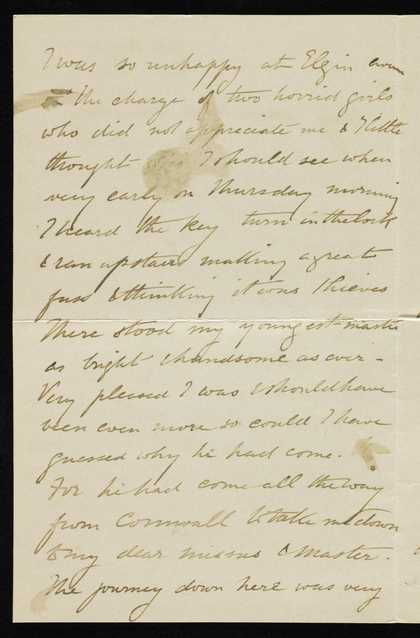 I was so unhappy at Elgin Avenue
in the charge of two horrid girls
who did not appreciate me & I little
thought I should see when
very early on Thursday morning
I heard the key turn in the lock
& ran upstairs making a great
fuss & thinking it was thieves
There stood my youngest master
as bright & handsome as ever -
Very pleased I was & should have
been even more so could I have
guessed why he had come.
For he had come all the way
from Cornwall to take me down
to my dear missus & Master.
The journey down here was very